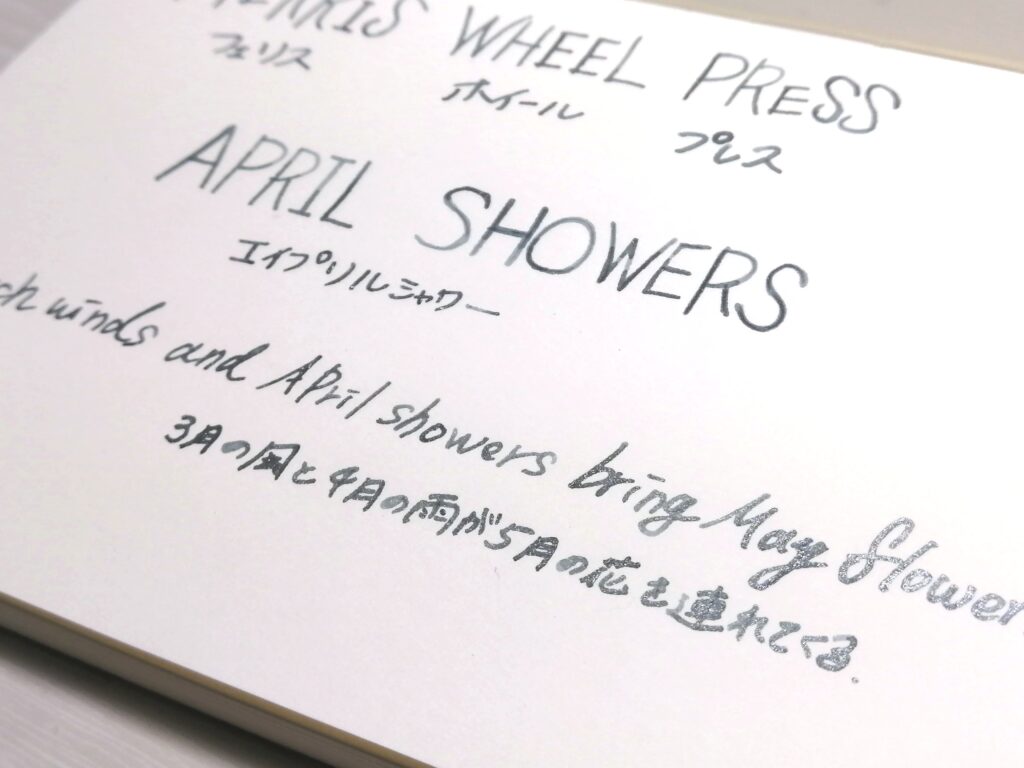 FERRIS WHEEL PRESS
フェリス ホイール プレス
APRIL SHOWERS
エイプリルシャワー
winds and April showers bring May flowers
3月の風と4月の雨が5月の花を連れてくる.